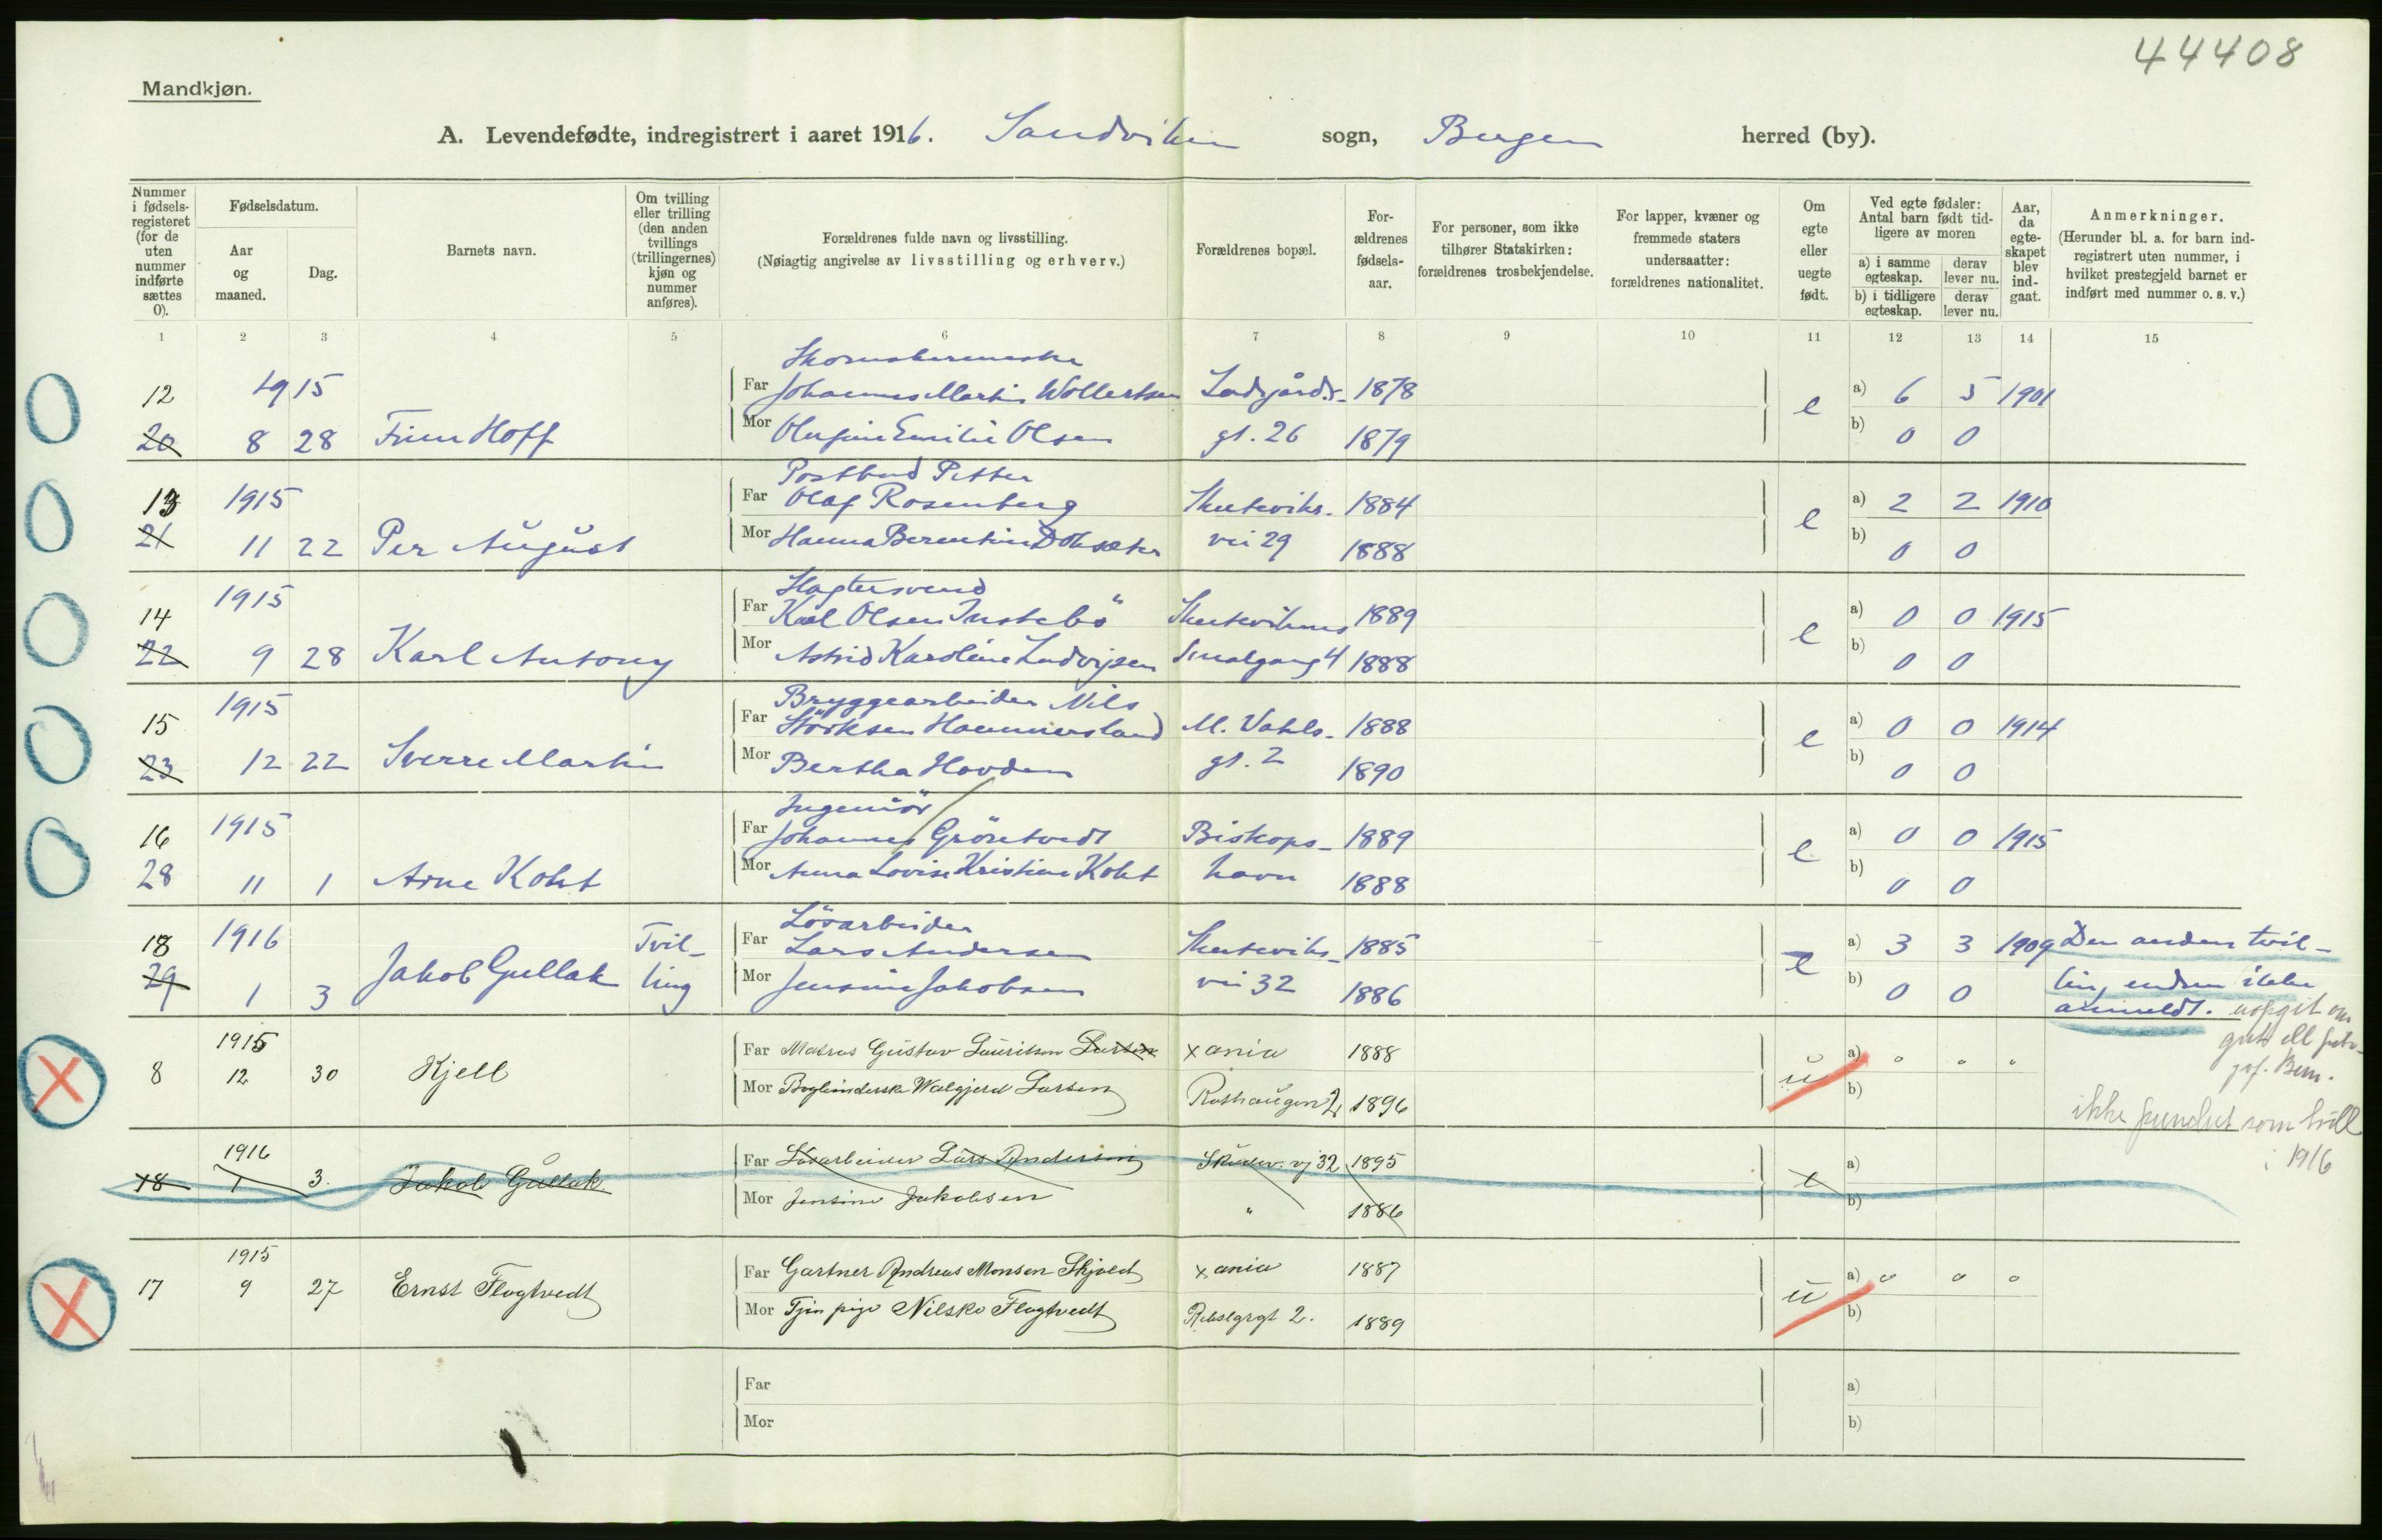 44408
Mandkjøn.
A. Levendefødte, indregistrert i aaret 1916. Sandviken sogn, Bergen herred (by).
Nummer i fødsels-registeret (for de uten nummer indførte sættes 0).
Fødselsdatum.
Aar og maaned.
Dag.
Barnets navn.
Om tvilling eller trilling (den anden tvillings (trillingernes) kjøn og nummer anføres).
Forældrenes fulde navn og livsstilling.
(Nøiagtig angivelse av livsstilling og erhverv.)
Forældrenes bopæl.
For-ældrenes fødsels-aar.
For personer, som ikke tilhører Statskirken: forældrenes trosbekjendelse.
For lapper, kvæner og fremmede staters undersaatter: forældrenes nationalitet.
Om egte eller uegte født.
Ved egte fødsler: Antal barn født tid-ligere av moren
a) i samme egteskap. derav lever nu.
b) i tidligere egteskap. derav lever nu.
Aar, da egte-skapet blev ind-gaat.
Anmerkninger.
(Herunder bl. a. for barn ind-registrert uten nummer, i hvilket prestegjeld barnet er indført med nummer o. s. v.)
1 2 3 4 5 6 7 8 9 10 11 12 13 14 15
12 1915 Far Johannes Martin Wollertsen Ladegårds- 1878 e a) 6 5 1901
20 8 28 Finn Hoff Mor Olufine Emilie Olsen gt. 26 1879 b) 0 0
Postbud Petter
13 1915 Far Olaf Rosenberg Skuteviks- 1884 e a) 2 2 1910
21 11 22 Per August Mor Hanna Berentine vei 29 1888 b) 0 0
Slagtersvend
14 1915 Far Karl Olsen Instebö Skutevikens 1889 e a) 0 0 1915
22 9 28 Karl Antony Mor Astrid Karoline Ludvigsen Smalgang 4 1888 b) 0 0
Bryggearbeider Nils
15 1915 Far Störksen Hammersland M. Vahls- 1888 e a) 0 0 1914
23 12 22 Sverre Martin Mor Bertha Hovden gt. 2 1890 b) 0 0
Ingeniör
16 1915 Far Johannes Grösetvedt Biskops- 1889 e a) 0 0 1915
28 11 1 Arne Koht Mor Anna Lovise Kristine Koht havn 1888 b) 0 0
Lösarbeider
18 1916 Tvil- Far Lars Andersen Skuteviks- 1885 e a) 3 3 1909 Den anden tvil-
29 1 3 Jakob Gullak ling Mor Jensine Jakobsen vei 32 1886 b) 0 0 ling endnu ikke
anmeldt. uopgit om
gut ell
8 1915 12 30 Kjell Far Matros Gustav Lauritsen Larsen Xania 1888 u a) " " "
Mor Bogbinderske Walgjerd Larsen Rothaugen 2 1896 b)
ikke fundet som tvill
i 1916
18 1916 1 3 Jakob Gullak Far Lösarbeider Lars Andersen Skutev. vj 32 1895 e a)
Mor Jensine Jakobsen " 1886 b)
17 1915 9 27 Ernst Flogtvedt Far Gartner Andreas Monsen Skjold Xania 1887 u a) 0 0 0
Mor Tjen pige Nilsko Flogtvedt 2. 1889 b)
Far a)
Mor b)